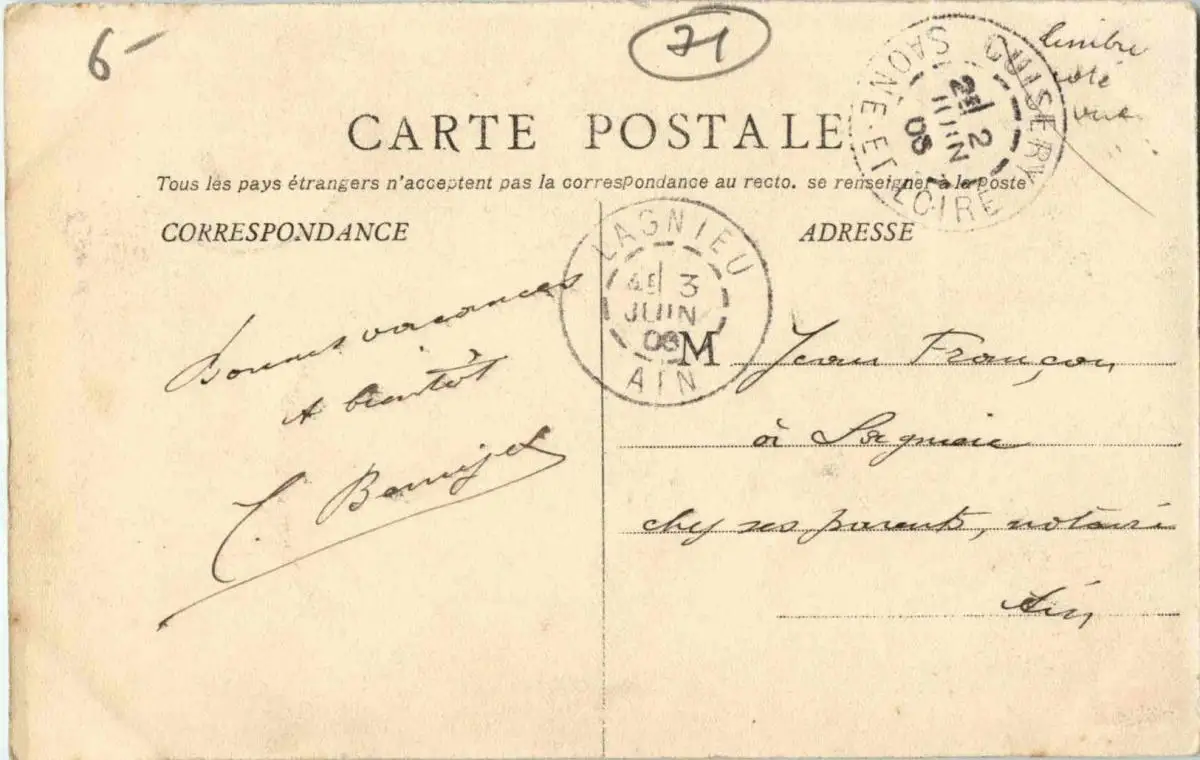 6-
71
timbre
côté
vue
CUISERY
2E 2
JUIN
08
SAÔNE-ET-LOIRE
CARTE POSTALE
Tous les pays étrangers n'acceptent pas la correspondance au recto. se renseigner à la Poste
CORRESPONDANCE
ADRESSE
LAGNIEU
3
JUIN
08
AIN
Bonnes vacances
A bientôt
M Jean Françon
à Lagnieu
chez ses parents, notaire
Ain